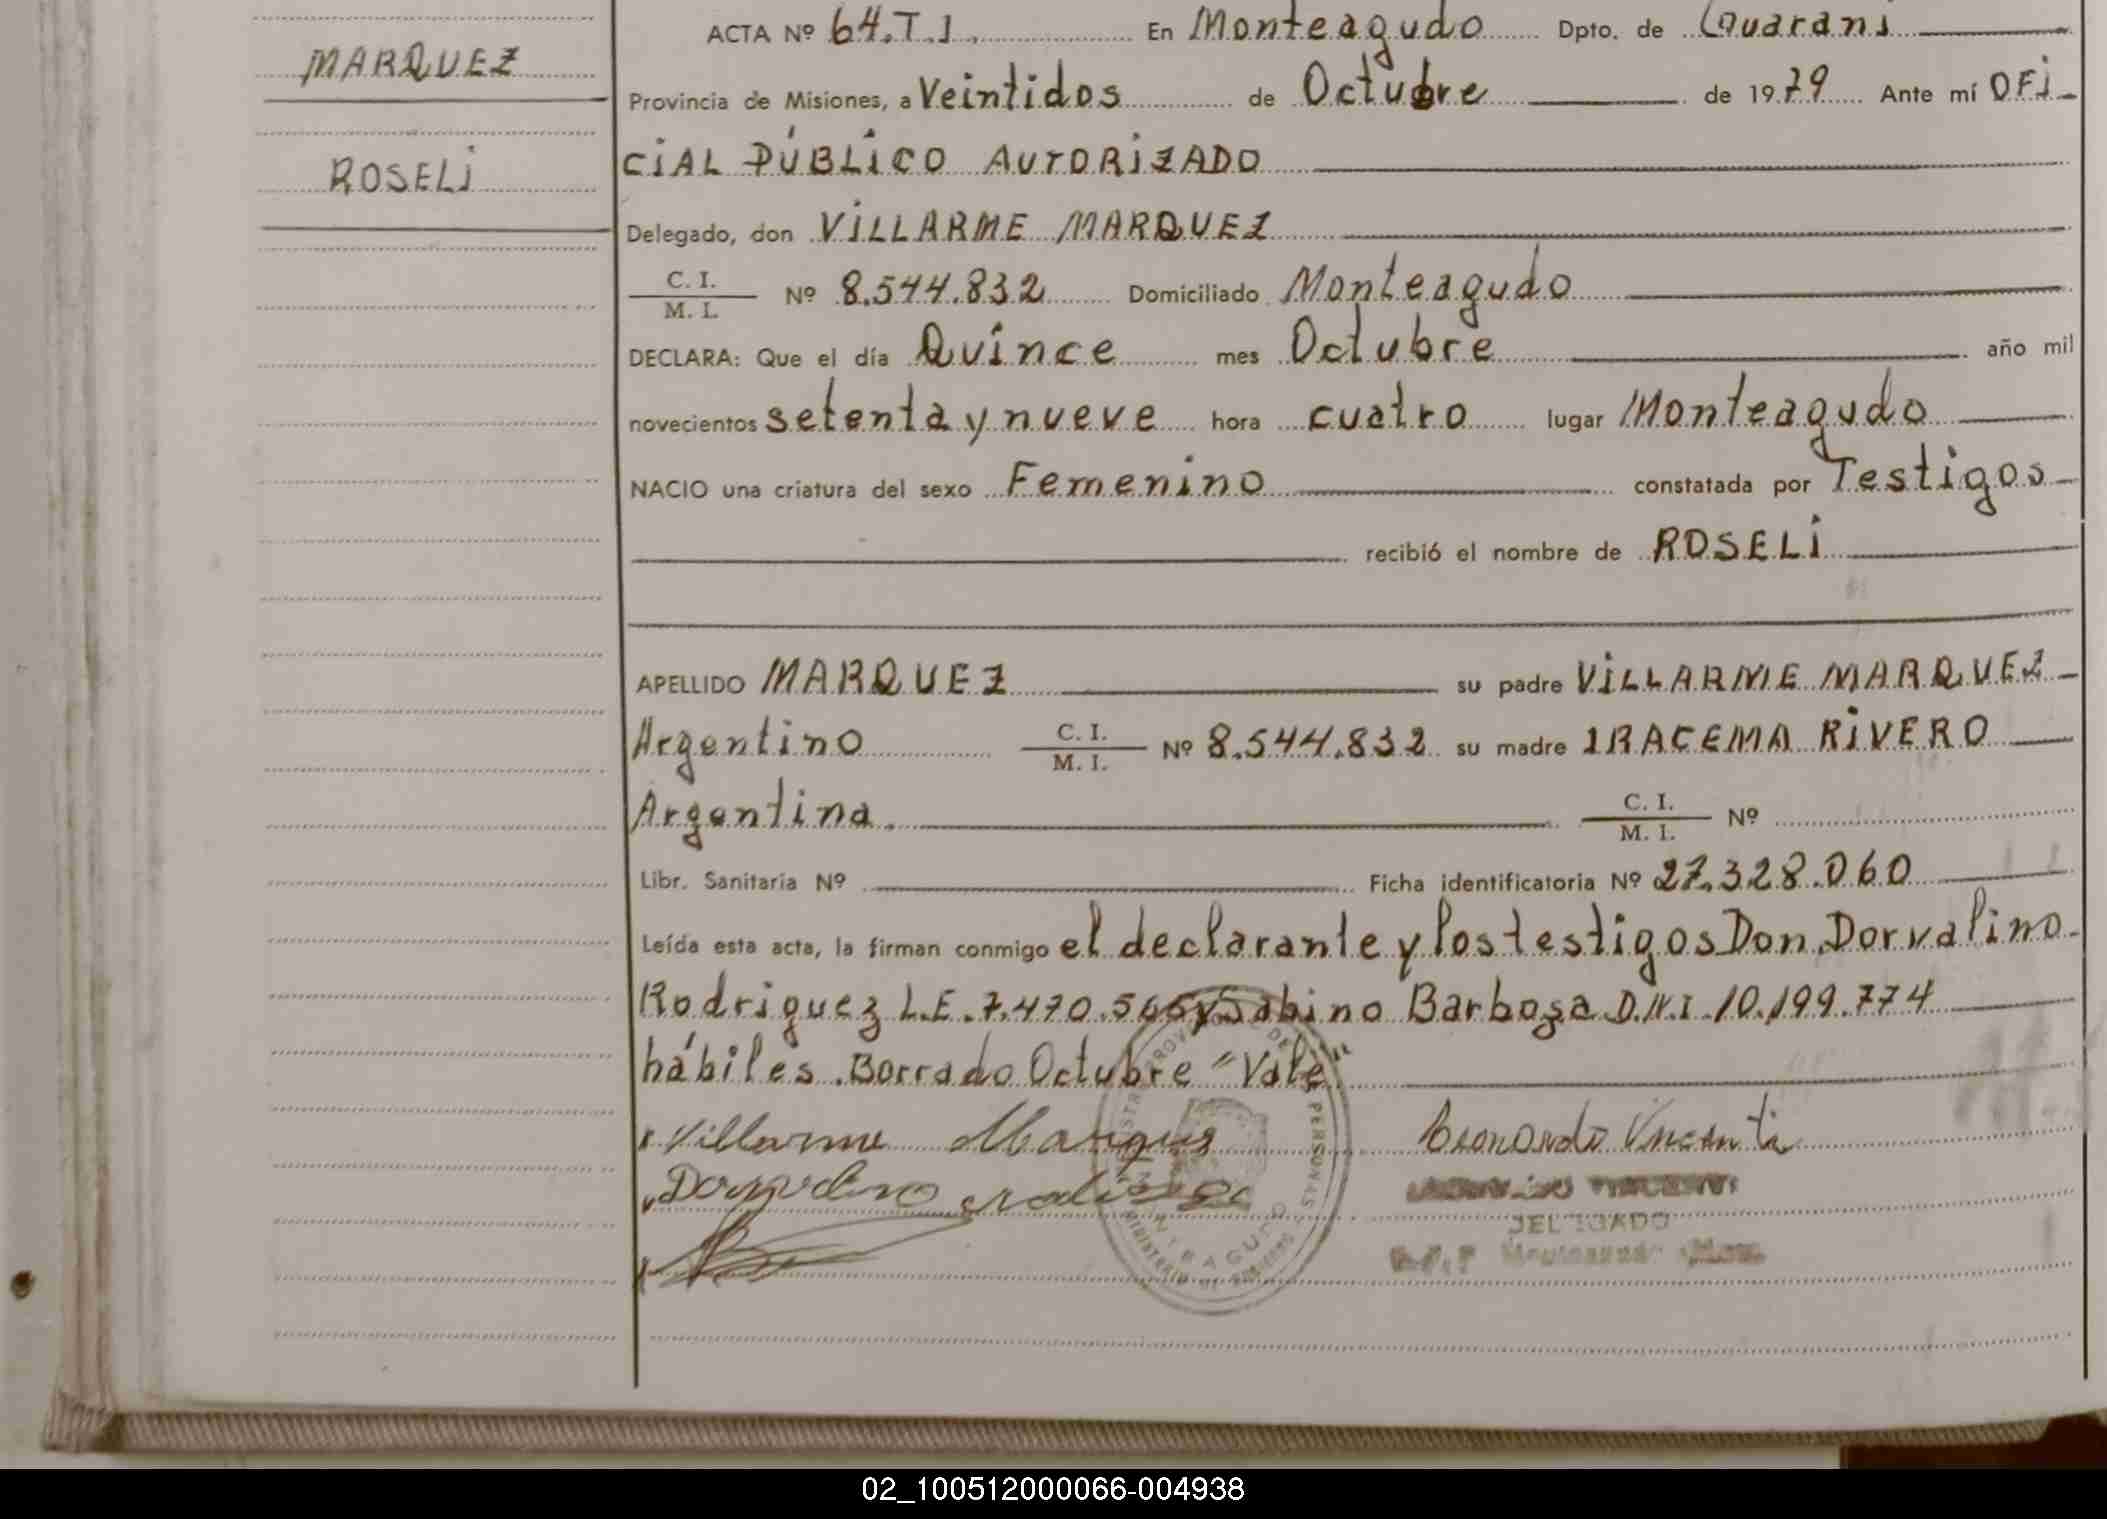 MARQUEZ
ROSELI
ACTA Nº 64.T.1. En Monteagudo Dpto. de Guarani
Provincia de Misiones, a Veintidos de Octubre de 1979 Ante mí OFI
CIAL PÚBLICO AUTORIZADO
Delegado, don VILLARME MARQUEZ
C. I. / M. I. Nº 8.544.832 Domiciliado Monteagudo
DECLARA: Que el día Quince mes Octubre año mil
novecientos setenta y nueve hora cuatro lugar Monteagudo
NACIO una criatura del sexo Femenino constatada por Testigos
recibió el nombre de ROSELI
APELLIDO MARQUEZ su padre VILLARME MARQUEZ
Argentino C. I. / M. I. Nº 8.544.832 su madre IRACEMA RIVERO
Argentina. C. I. / M. I. Nº
Libr. Sanitaria Nº Ficha identificatoria Nº 27.328.060
Leída esta acta, la firman conmigo el declarante y los testigos Don Dorvalino
Rodriguez L.E. 7.470.565 y Sabino Barboza D.N.I. 10.199.774
hábiles. Borrado Octubre "Vale"
Villarme Marques
Leonardo Vicenti
DELEGADO
02_100512000066-004938